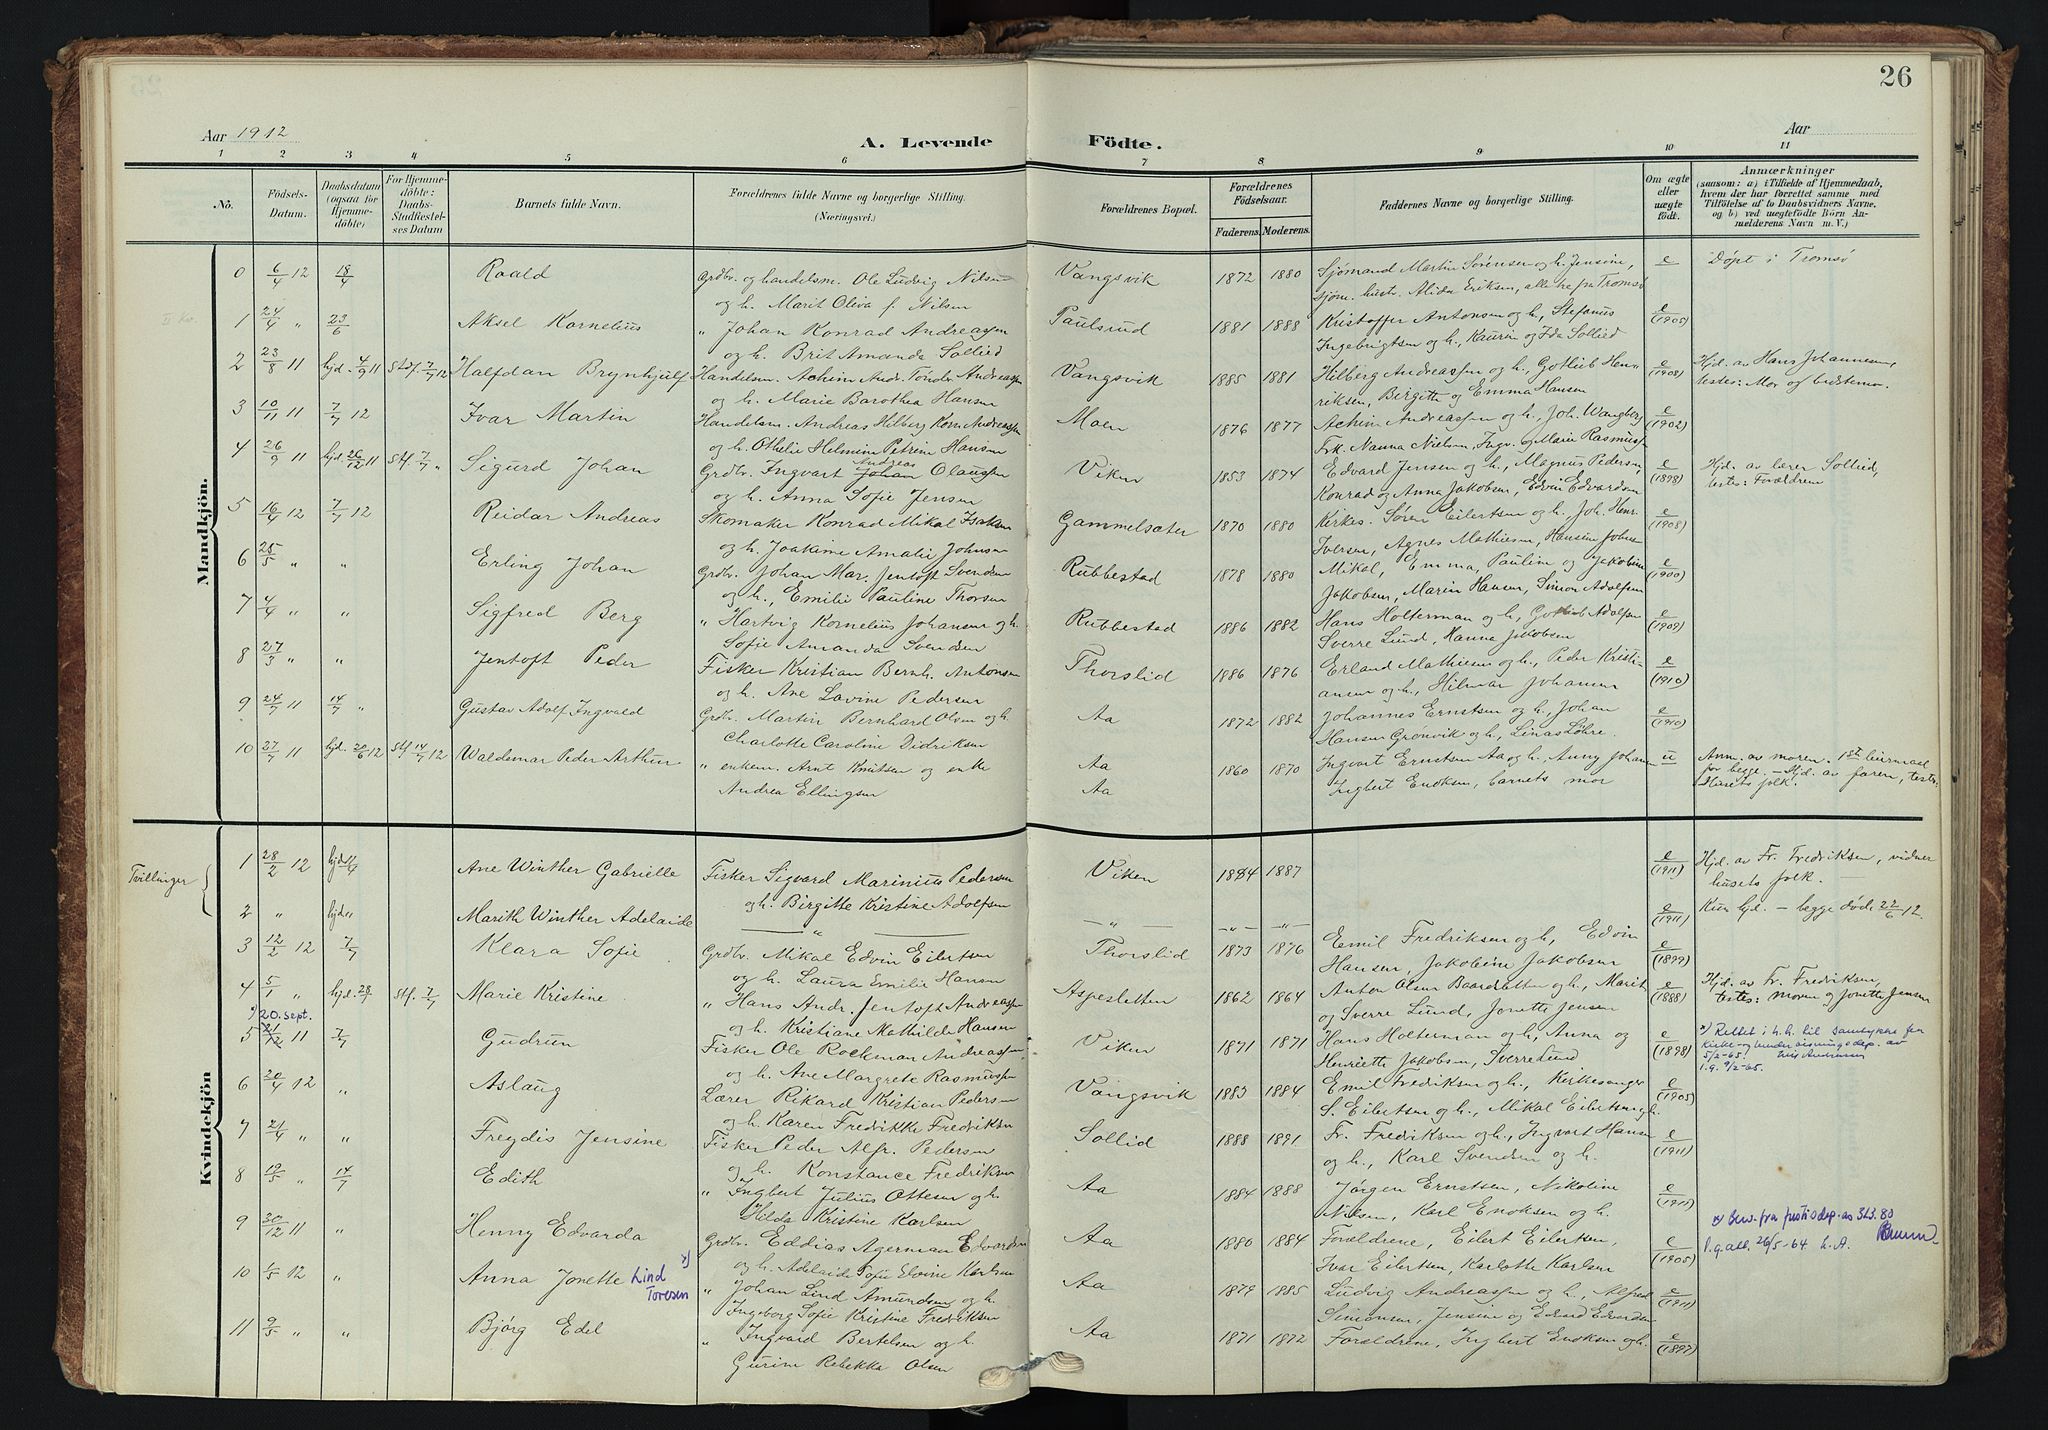 26
Aar 1912
A. Levende Födte.
Aar
1 2 3 4 5 6 7 8 9 10 11
Nô.
Födsels-
Datum.
Daabsdatum
(ogsaa for
Hjemme-
döbte)
For Hjemme-
döbte:
Daabs-
Stadfæstel-
ses Datum
Barnets fulde Navn.
Forældrenes fulde Navne og borgerlige Stilling.
(Næringsvei.)
Forældrenes Bopæl.
Forældrenes
Födselsaar.
Faderens. Moderens.
Faddernes Navne og borgerlige Stilling.
Om ægte
eller
uægte
födt.
Anmærkninger
(saasom: a) i Tilfælde af Hjemmedaab,
hvem der har forrettet samme med
Tilföielse af to Daabsvidners Navne,
og b) ved uægtefödte Börn An-
melderens Navn m. V.)
Mandkjön.
0 6/4 12 18/4 Roald Grdbr. og handelsm. Ole Ludvig Nilsen Vangsvik 1872 1880 Sjömand Martin Sörensen og h. Jensine, e Döpt i Tromsö
og h. Marit Oliva f. Nilsen sjöm. hustr. Alida Eriksen, alle tre fra Tromsö
1 24/4 " 23/6 Aksel Kornelius " Johan Konrad Andreassen Paulsrud 1881 1888 Kristoffer Antonsen og h., Stefanus e (1905)
og h. Brit Amanda Sollied Ingebrigtsen og h., Kaurin og Ida Sollied
2 23/8 11 hjd. 4/9 11 Stf. 7/7 12 Halfdan Brynhjulf Handelsm. Achim Andr. Tönder Andreassen Vangsvik 1885 1881 Hilberg Andreassen og h., Gotlieb Hen- e (1908) Hjd. av Hans Johannesen,
og h. Marie Barothea Hansen riksen, Birgitte og Emma Hansen testes: Mor og bedstemor.
3 10/11 11 7/7 12 Ivar Martin Handelsm. Andreas Hilberg Korn. Andreassen Moen 1876 1877 Achim Andreassen og h., Joh. Wangberg e (1902)
og h. Othelie Helmine Petrine Hansen Frk. Nanna Nielsen, Ingv. og Marie Rasmussen
4 26/9 11 hjd. 26/12 11 Stf. 7/7 " Sigurd Johan Grdbr. Ingvart Andreas Johan Olaussen Viken 1853 1874 Edvard Jensen og h., Magnus Pedersen, e (1898) Hjd. av lærer Sollied,
og h. Anna Sofie Jensen Konrad og Anna Jakobsen, Edvin Edvardsen testes: Forældrene
5 16/4 12 7/7 12 Reidar Andreas Skomaker Konrad Mikal Isaksen Gammelsæter 1870 1880 Kirkes. Sören Eilertsen og h., Joh. Henr. e (1908)
og h. Joakime Amalie Johnsen Iversen, Agnes Mathiesen, Hansine Johnsen
6 25/5 " " Erling Johan Grdbr. Johan Mar. Jentoft Svendsen Rubbestad 1878 1880 Mikal, Emma, Pauline og Jakobine e (1900)
og h., Emilie Pauline Thorsen Jakobsen, Marin Hansen, Simon Adolfsen
7 4/4 " " Sigfred Berg " Hartvig Kornelius Johansen og h. Rubbestad 1886 1882 Hans Holterman og h., Gotlieb Adolfsen e (1909)
Sofie Amanda Svendsen Sverre Lund, Hanna Jakobsen
8 27/3 " " Jentoft Peder Fisker Kristian Bernh. Antonsen Thorslid 1886 1876 Erland Mathiesen og h., Peder Kristi- e (1910)
og h. Ane Lavine Pedersen ansen og h., Hilmar Johansen
9 24/7 11 14/7 " Gustav Adolf Ingvald Grdbr. Martin Bernhard Olsen og h. Aa 1872 1882 Johannes Ernstsen og h., Johan e (1910)
Charlotte Caroline Didriksen Hansen Grönvik og h., Linas Löhre.
10 27/7 11 hjd. 20/6 12 Stf 14/7 12 Waldemar Peder Arthur " enkem. Arnt Knutsen og enke Aa 1860 1870 Ingvart Ernstsen Aa og h., Anny Johansen u Anm. av moren. 1st leiermaal
Andrea Ellingsen Aa Ingbert Enoksen, barnets mor for begge. - Hjd. av faren, testes:
Husets folk.
Kvindekjön
Tvillinger
1 28/2 12 hjd. /4 Ane Winther Gabrielle Fisker Sigvard Marinius Pedersen Viken 1884 1887 e (1911) Hjd. av Fr. Fredriksen, vidner
og h. Birgitte Kristine Adolfsen husets folk.
2 " hjd. " Marith Winther Adelaide " " " " e (1911) Kun hjd. - begge døde 22/6 12.
3 12/2 12 7/7 Klara Sofie Grdbr. Mikal Edvin Eilertsen Thorslid 1873 1876 Emil Fredriksen og h., Edvin e (1899)
og h. Laura Emilie Hansen Hansen, Jakobine Jakobsen
4 5/1 " hjd. 28/1 Stf. 7/7 Marie Kristine " Hans Andr. Jentoft Andreassen Aspesletten 1862 1864 Anton Olsen Baardsletten og h., Marit e (1888) Hjd. av Fr. Fredriksen,
og h. Kristiane Mathilde Hansen og Sverre Lund, Jonette Jensen testes: moren og Jonette Jensen
x) 20. sept.
5 21/12 11 7/7 Gudrun Fisker Ole Rockman Andreassen Viken 1871 1871 Hans Holterman og h., Anna og e (1898) x) Rettet i h.h. til samtykke fra
og h. Ane Margrete Rasmussen Henriette Jakobsen, Sverre Lund Kirke- og undervisningsdep. av
5/2-65.
l.g. 9/2-65.
6 20/4 12 " Aslaug Lærer Rikard Kristian Pedersen Vangsvik 1883 1884 Emil Fredriksen og h., Kirkesanger e (1905)
og h. Karen Fredrikke Fredriksen S. Eilertsen og h., Mikal Eilertsen og h.
7 21/4 " " Freydis Jensine Fisker Peder Alfr. Pedersen Sollid 1888 1891 Fr. Fredriksen og h., Ingvart Hansen e (1911)
og h. Konstance Fredriksen og h., Karl Svendsen og h.
8 19/5 " 14/7 Edith " Ingbert Julius Ottesen og h. Aa 1884 1888 Jörgen Ernstsen, Nikoline e (1911)
Hilda Kristine Karlsen Nilsen, Karl Enoksen og h.
9 30/12 11 " Henny Edvarda Grdbr. Eddias Agerman Edvardsen Aa 1880 1884 Forældrene, Eilert Eilertsen, e (1905) x) Bew. fra justisdep. av 3/3.80
og h. Adelaide Sofie Elvine Karlsen Ivar Eilertsen, Karlotte Karlsen l.g. att. 26/5-64 h.A.
10 1/5 12 " Anna Jonette Lind Toresen x) " Johan Lind Amundsen og h. Aa 1879 1885 Ludvig Andreassen og h., Alfred e (1911)
Ingeborg Sofie Kristine Fredriksen Simonsen, Jensine og Edvard Edvardsen
11 9/5 " " Bjørg Edel " Ingvald Bertelsen og h. Aa 1871 1872 Forældrene, Ingbert Enoksen og h. e (1897)
Gurine Rebekka Olsen